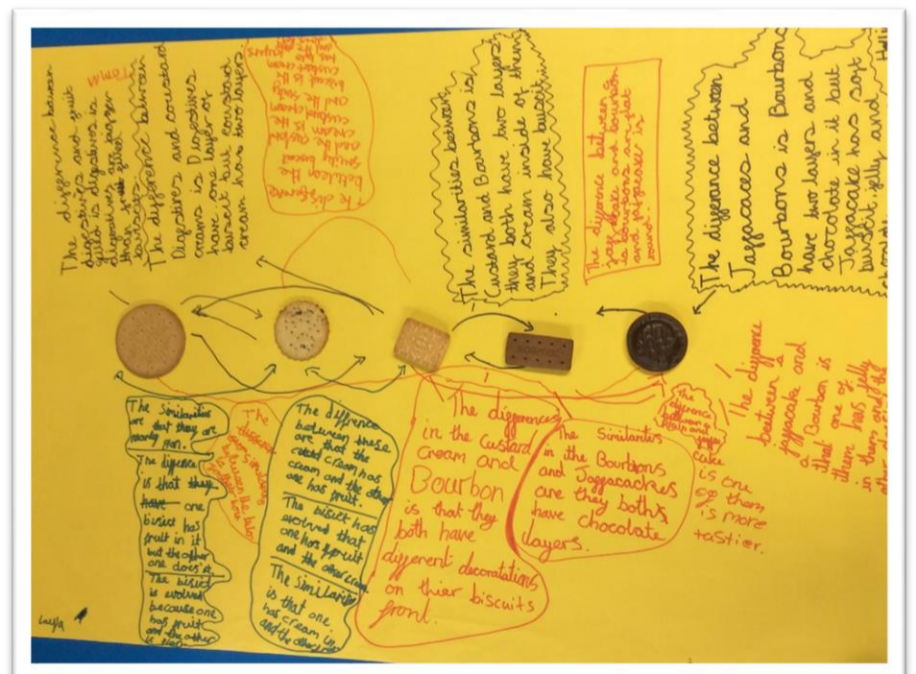 The differance between
digestives and fruit
digestives are bigger
The difference between
Digestives and coustard
creams is Digestives
have one layer of
busit but coustard
cream has two layers.
The similarities between
Custard and Bourbons is
they both have two layers
and cream inside of them
They also have buiscit.
The difference between a
jaffacake and bourbon
is bourbons are flat
and jaffacake is
round.
The differance between
Jaffacaces and
Bourbons is Bourbons
have two layers and
chocolate in it but
Jaffacake has soft
buisit, jelly and
The Similarities
are that they are
The difference
is that they
have one
bisict has
fruit in it
but the other
one does't
The bisict
is evolved
because one
has fruit
and the other
is plain
The diffrence
between these
are that the
cream has
cream and the other
one has fruit.
The bisict has
evolved that
one has fruit
and the other cream
The Similarity
is that one
has cream in
and the other
The differences
in the custard
cream and
Bourbon
is that they
both have
different decoratations
on thier biscuits
front.
The Similarites
in the Bourbons
and Jaffacackes
are they both
have chocolate
layers.
The
differance
between a
cake
is one
of them
is more
tastier.
The diffence
between a
jaffacake and
a Bourbon is
that one of
them has jelly
in them and the
Layla